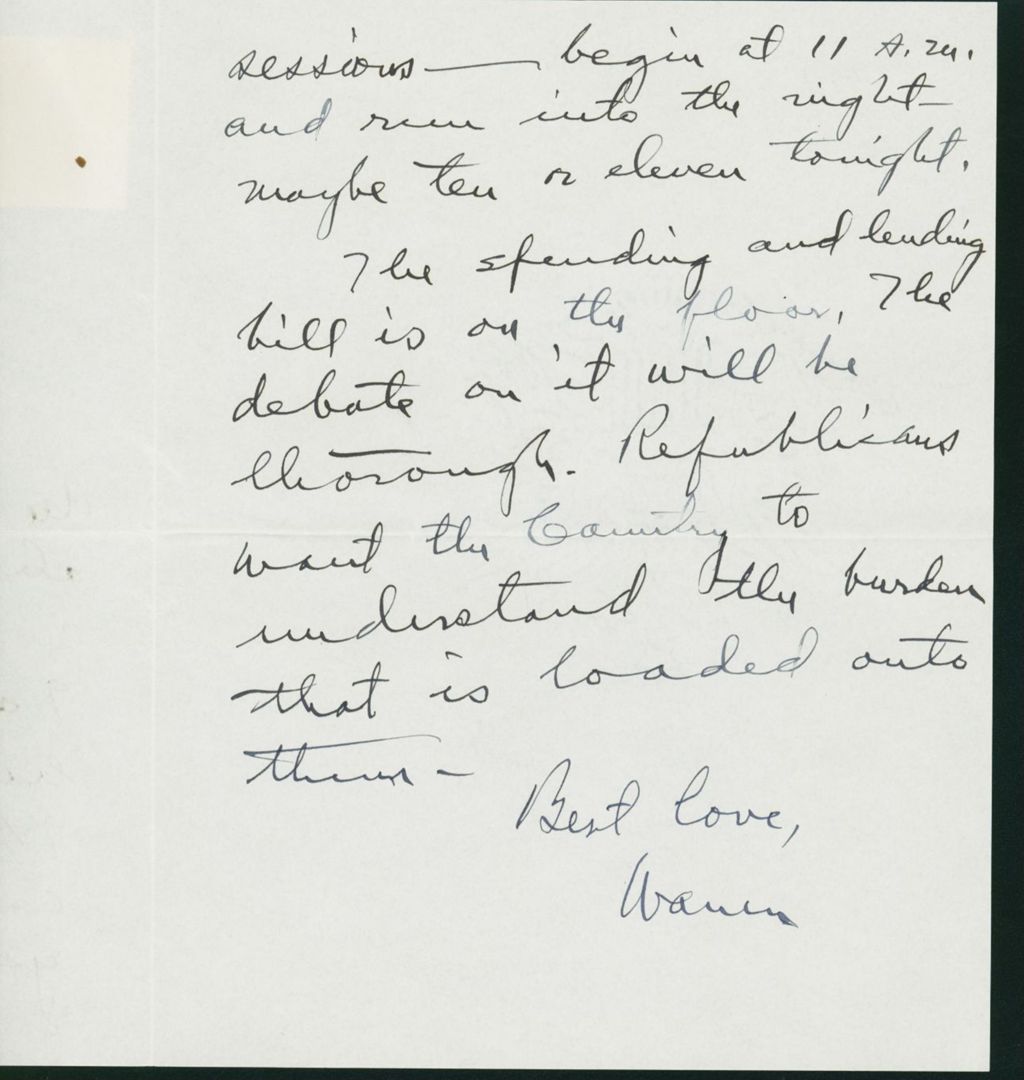 sessions — begin at 11 A.M.
and run into the night —
maybe ten or eleven tonight.
The spending and lending
bill is on the floor, The
debate on it will be
thorough. Republicans
want the Country to
understand the burden
that is loaded onto
them -
Best love,
Warren